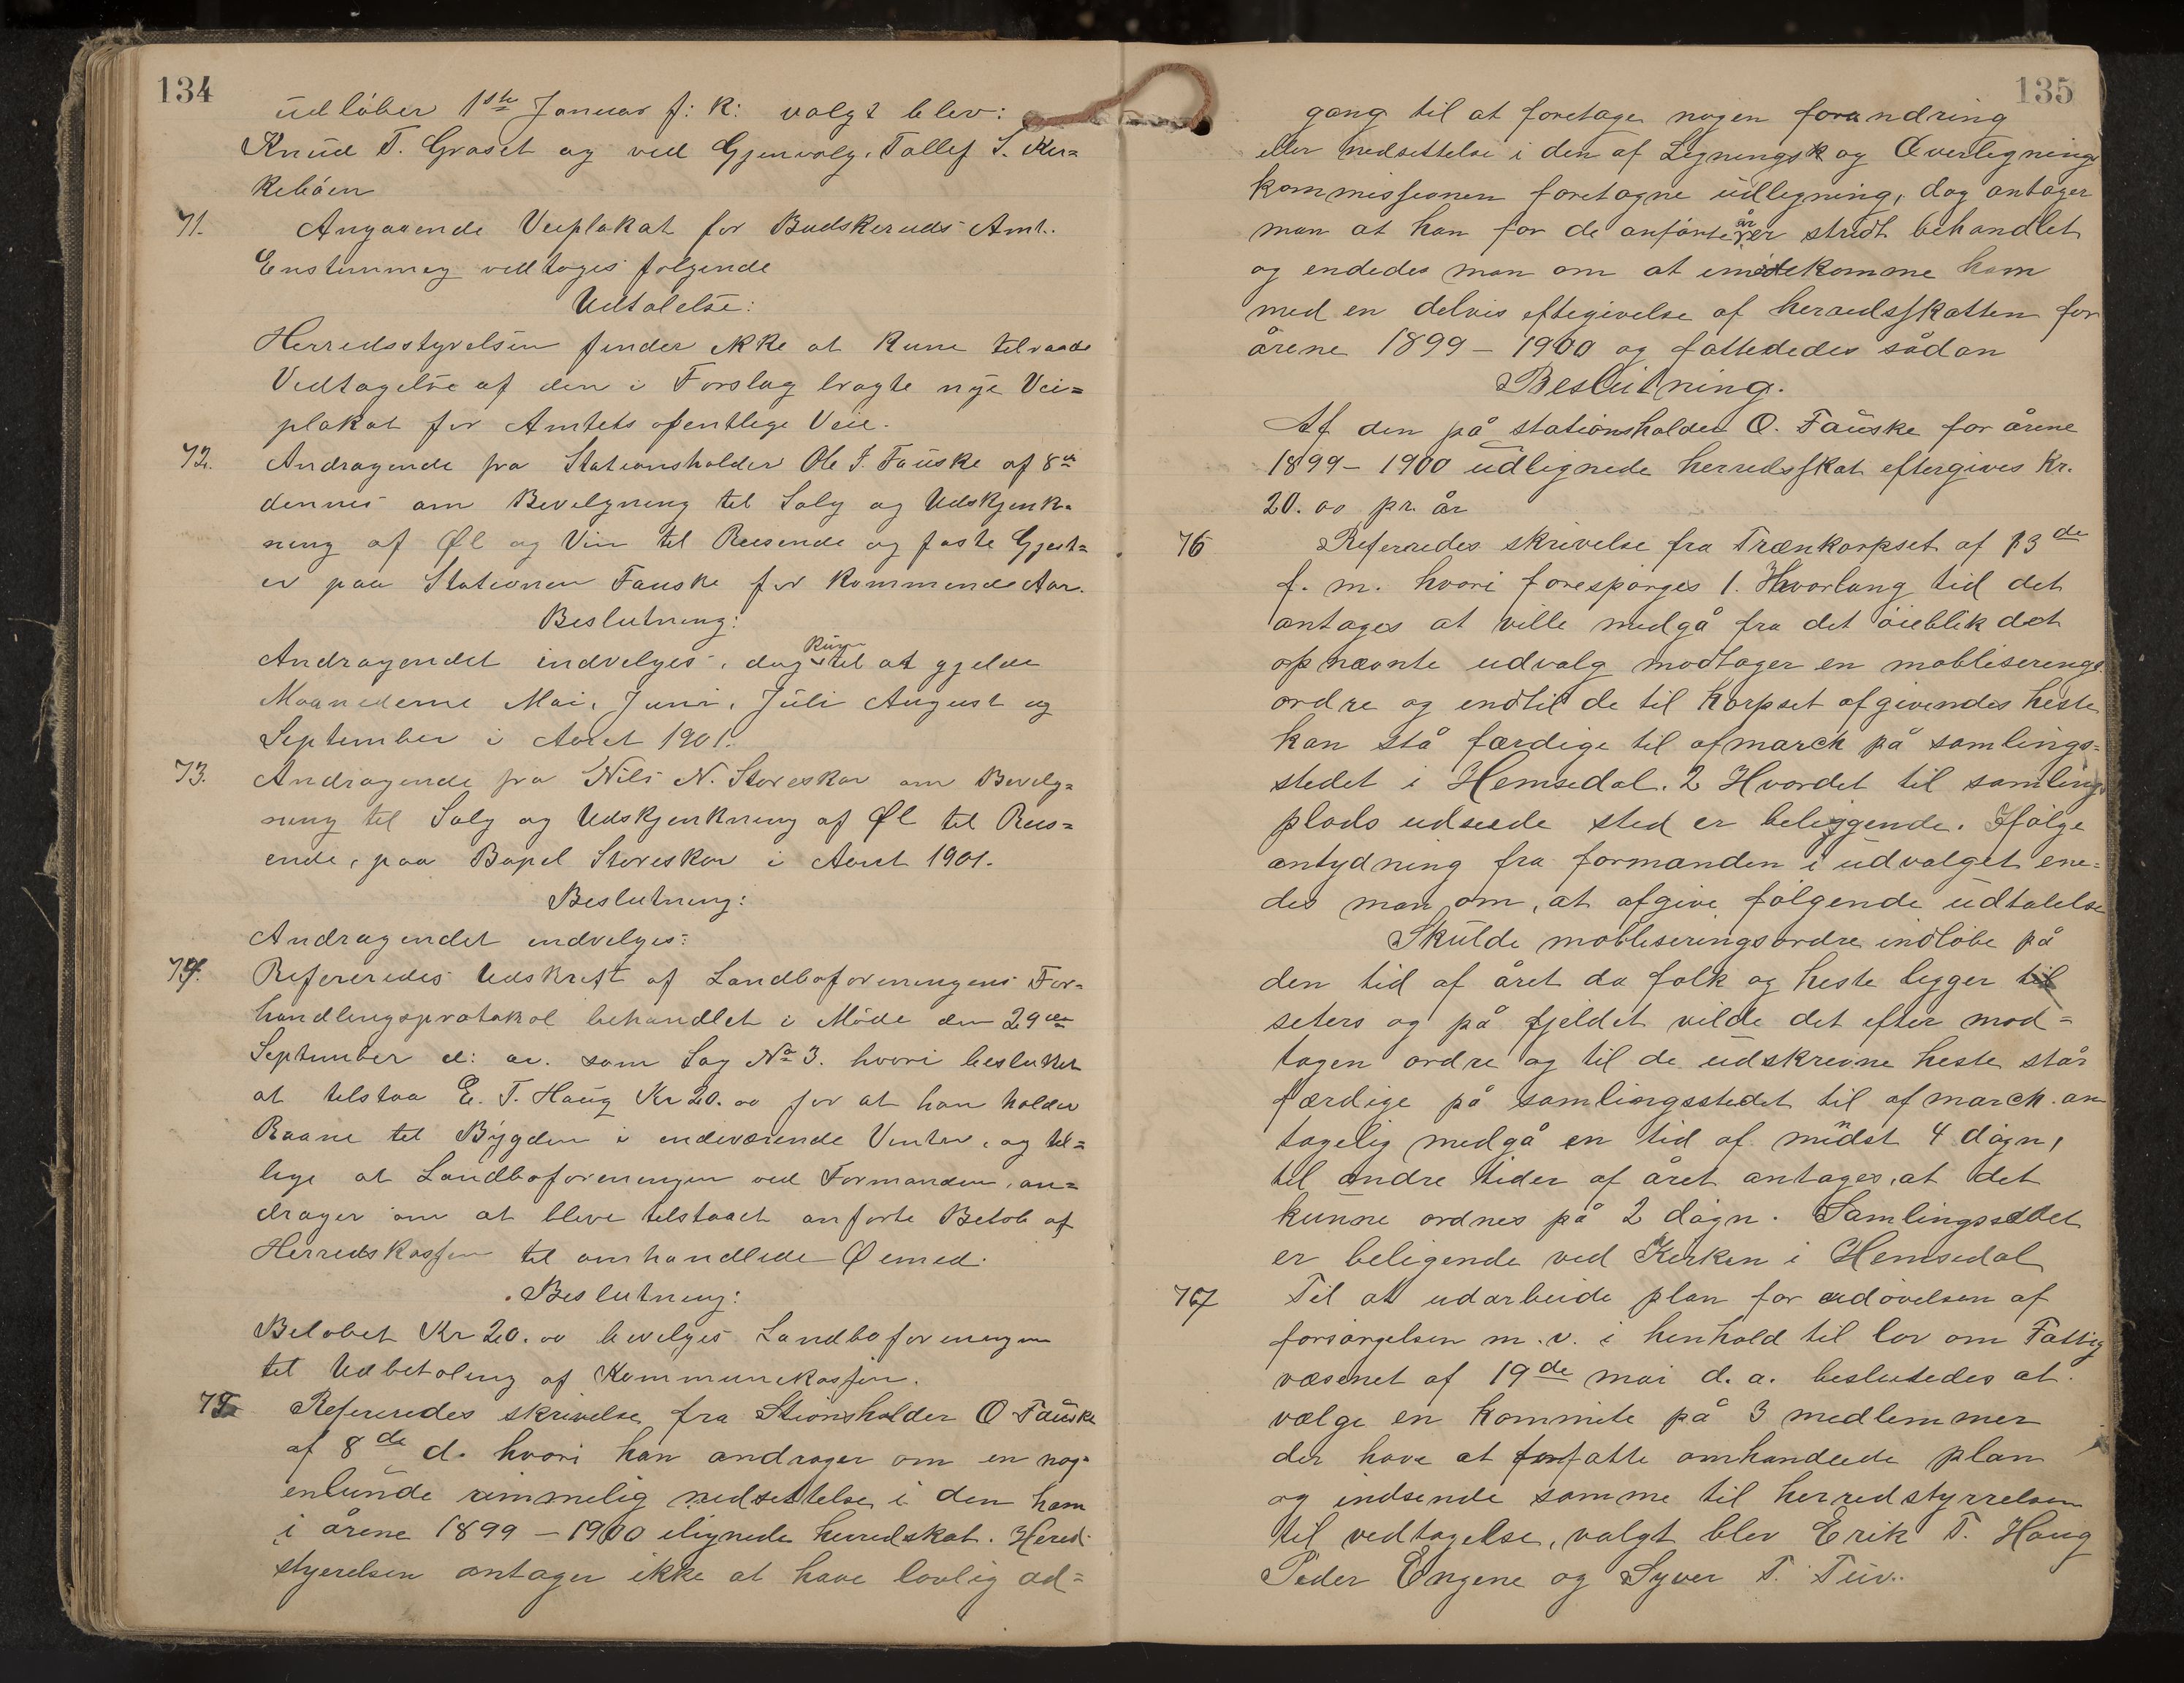 134
udløber 1ste Januar f: k: valgt blev:
Knud T. Graset og ved Gjenvalg, Tollef T. Kir=
kebøen
71. Angaaende Veiplakat for Buskeruds Amt.
Enstemmig vedtoges følgende
Udtalelse:
Herredsstyrelsen finder ikke at kune tilraade
Vedtagelse af den i Forslag bragte nye Vei=
plakat for Amtets ofentlige Veie.
72. Andragende fra Stationsholder Ole T. Fauske af 8de
dennes om Bevilgning til Salg og Udskjenk=
ning af Øl og Vin til Reisende og faste Gjest=
er paa Stationen Fauske for kommende Aar.
Beslutning:
Andragendet indvilges, dog kun til at gjelde
Maanederne Mai, Juni, Juli August og
September i Aaret 1901.
73. Andragende fra Nils N. Storeskar om Bevilg=
ning til Salg og Udskjenkning af Øl til Reis=
ende, paa Bopel Storeskar i Aaret 1901.
Beslutning:
Andragendet indvilges:
74. Refereredes Udskrift af Landboforeningens For=
handlingsprotokol behandlet i Møde den 29de
September d: a. som Sag No 3. hvori besluttet
at tilstaa E. T. Haug Kr 20.00 for at han holder
Raane til Bygden i indeværende Vinter, og til=
lige at Landboforeningen ved Formanden, an=
drager om at blive tilstaaet anførte Beløb af
Herredskassen til omhandlede Øiemed.
Beslutning:
Beløbet Kr 20.00 bevilges Landboforeningen
til Udbetaling af Kommunekassen.
75 Refereredes skrivelse fra Stionsholder O Fauske
af 8de d. hvori han andrager om en nog=
enlunde rimmelig nedsettelse i den ham
i årene 1899 – 1900 ilignede herredskat. Hered=
styerelsen antager ikke at have lovlig ad=
135
gang til at foretage nogen forandring
eller nedsettelse i den af Legningsk og Overlegnings
kommissionen foretagne udlegning, dog antager
man at han for de anførte år er stridt behandlet
og endedes man om at imødekomme ham
med en delvis eftegivelse af herredsskatten for
årene 1899 – 1900 og fattededes sådan
Beslutning.
Af den på stationsholder O. Fauske for årene
1899 – 1900 udlignede herredsskat eftergives Kr.
20.00 pr. år
76 Referredes skrivelse fra Trænkorpset af 13de
f. m. hvori forespørges 1. Hvorlang tid det
antages at ville medgå fra det øieblik det
opnævnte udvalg modtager en mobliserings
ordre og indtil de til korpset afgivendes heste
kan stå færdige til afmarch på samlings=
stedet i Hemsedal. 2 Hvordet til samlings
plads udseede sted er beliggende. Ifølge
antydning fra formanden i udvalget ene=
des man om, at afgive følgende udtalelse
Skulde mobliseringsordre indløbe på
den tid af året da folk og heste ligger til
seters og på fjeldet vilde det efter mod=
tagen ordre og til de udskrevne heste står
færdige på samlingsstedet til afmarch an
tagelig medgå en tid af mindst 4 døgn,
til andre tider af året antages, at det
kunne ordnes på 2 døgn. Samlingsstedet
er beligende ved Kirken i Hemsedal
77 Til at udarbeide plan for udøvelsen af
forsørgelsen m.v. i henhold til lov om Fattig
væsenet af 19de mai d. a. beslutedes at
vælge en kommite på 3 medlemmer
der have at forfatte omhandlede plan
og indsende samme til herredstyrrelsen
til vedtagelse, valgt blev Erik T. Haug
Peder Engene og Syver T. Tuv.